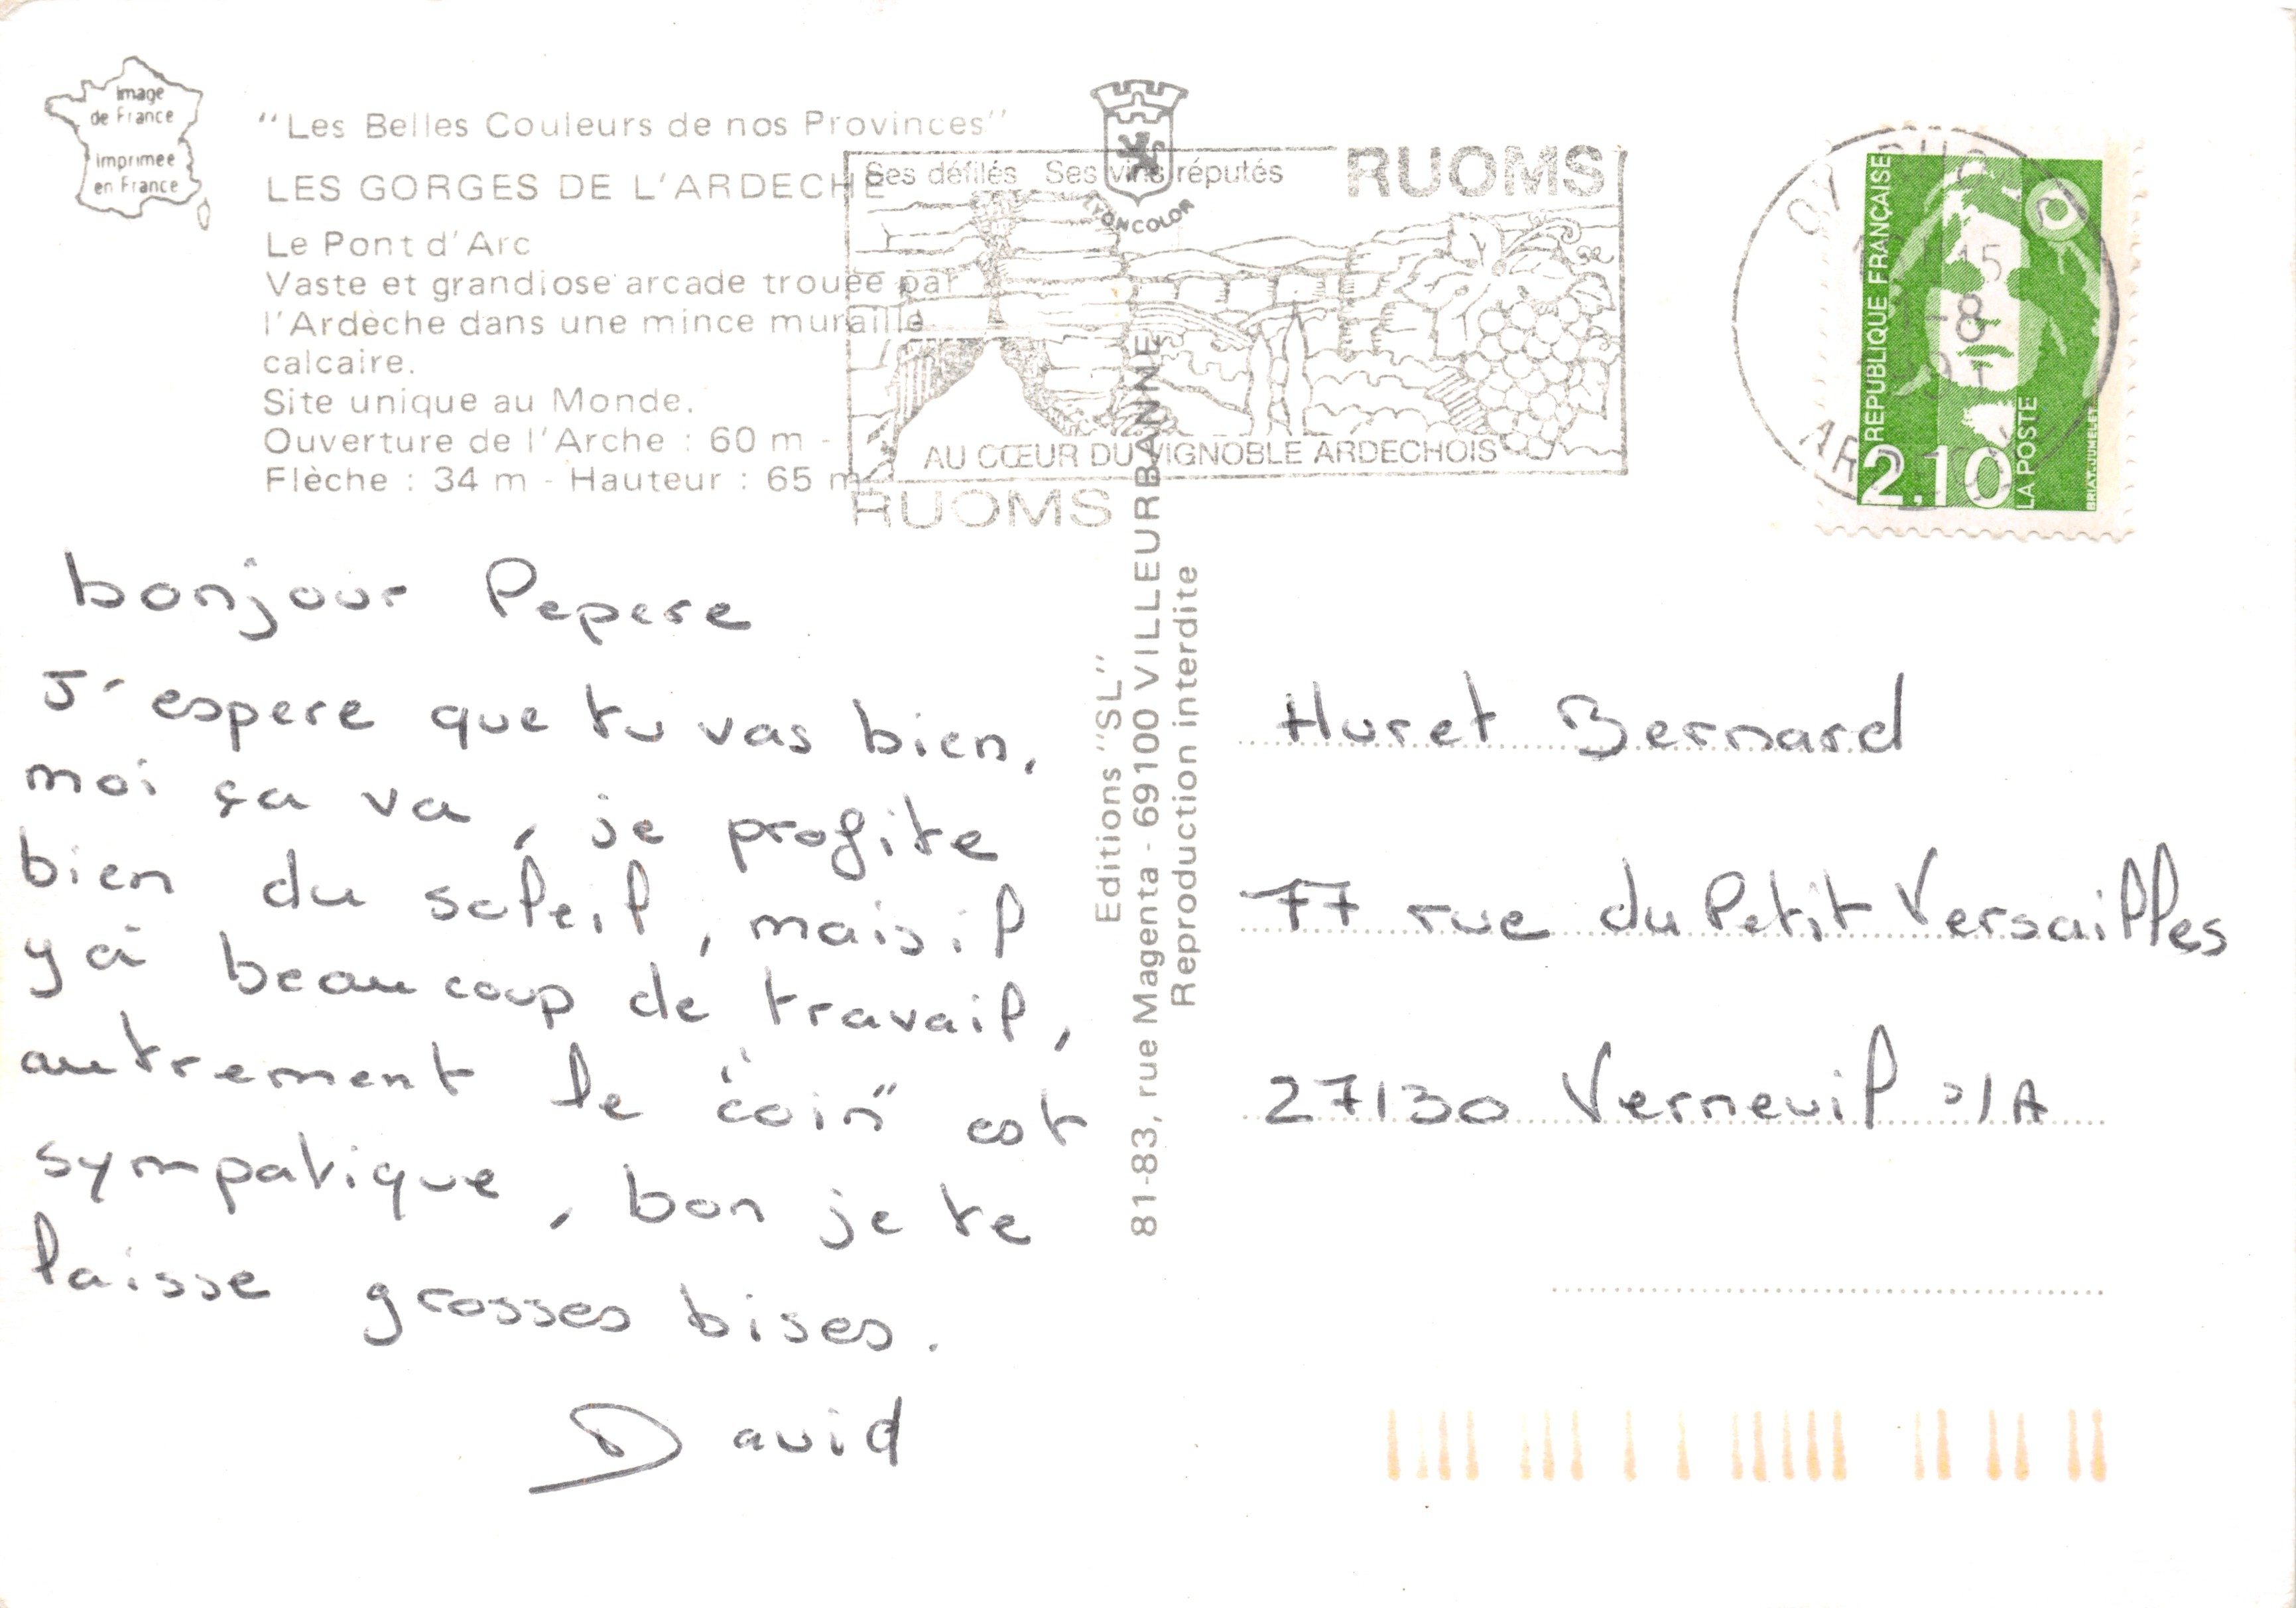 Image
de France
imprimée
en France
"Les Belles Couleurs de nos Provinces"
LES GORGES DE L'ARDECHE
Le Pont d'Arc
Vaste et grandiose arcade trouée par
l'Ardèche dans une mince muraille
calcaire.
Site unique au Monde.
Ouverture de l'Arche : 60 m -
Flèche : 34 m - Hauteur : 65 m
LYONCOLOR
Ses défilés Ses vins réputés RUOMS
AU CŒUR DU VIGNOBLE ARDECHOIS
RUOMS
REPUBLIQUE FRANÇAISE
2,10
LA POSTE
BRIAT-JUMELET
bonjour Pepere
J'espere que tu vas bien,
moi ça va, je profite
bien du soleil, mais il
y a beaucoup de travail,
autrement le "coin" est
sympatique, bon je te
laisse grosses bises.
David
Editions "SL"
81-83, rue Magenta - 69100 VILLEURBANNE
Reproduction interdite
Huret Bernard
77 rue du Petit Versailles
27130 Verneuil s/A